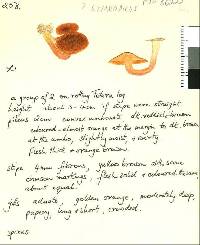 258.
? GYMNOPILUS
a group of 2 on rotting Totara log
height about 3-4cm if stipe were straight.
pileus 2cm convex umbonate dk. reddish-brown
coloured almost orange at the margin to dk. brown
at the umbo, slightly moist & scurfy
flesh thick & orange brown.
stipe 4mm, fibrous, yellow brown with some
crimson markings, flesh solid & coloured brown
about equal.
gills adnate, golden orange, moderately deep,
papery, long & short, crowded.
spores